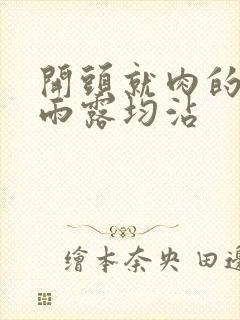 開頭就肉的
雨露均沾
繪本奈央 田邊